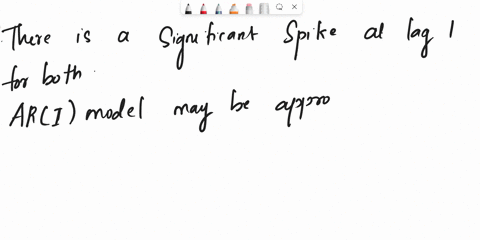 There is a Significant Spike at lag 1
for both
AR(I) model may be appro